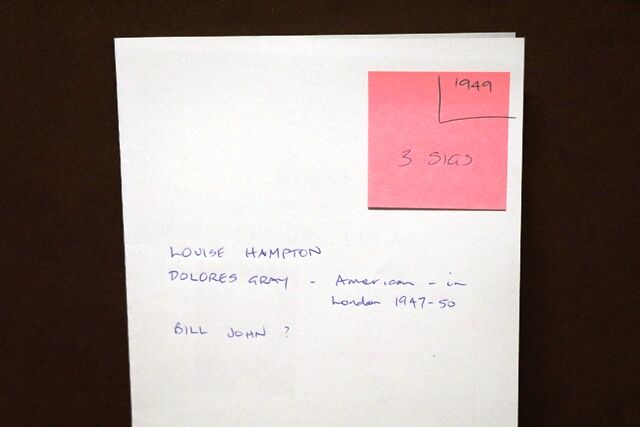 1949
3 SIGS
LOUISE HAMPTON
DOLORES GRAY - American - in
London 1947-50
BILL JOHN ?